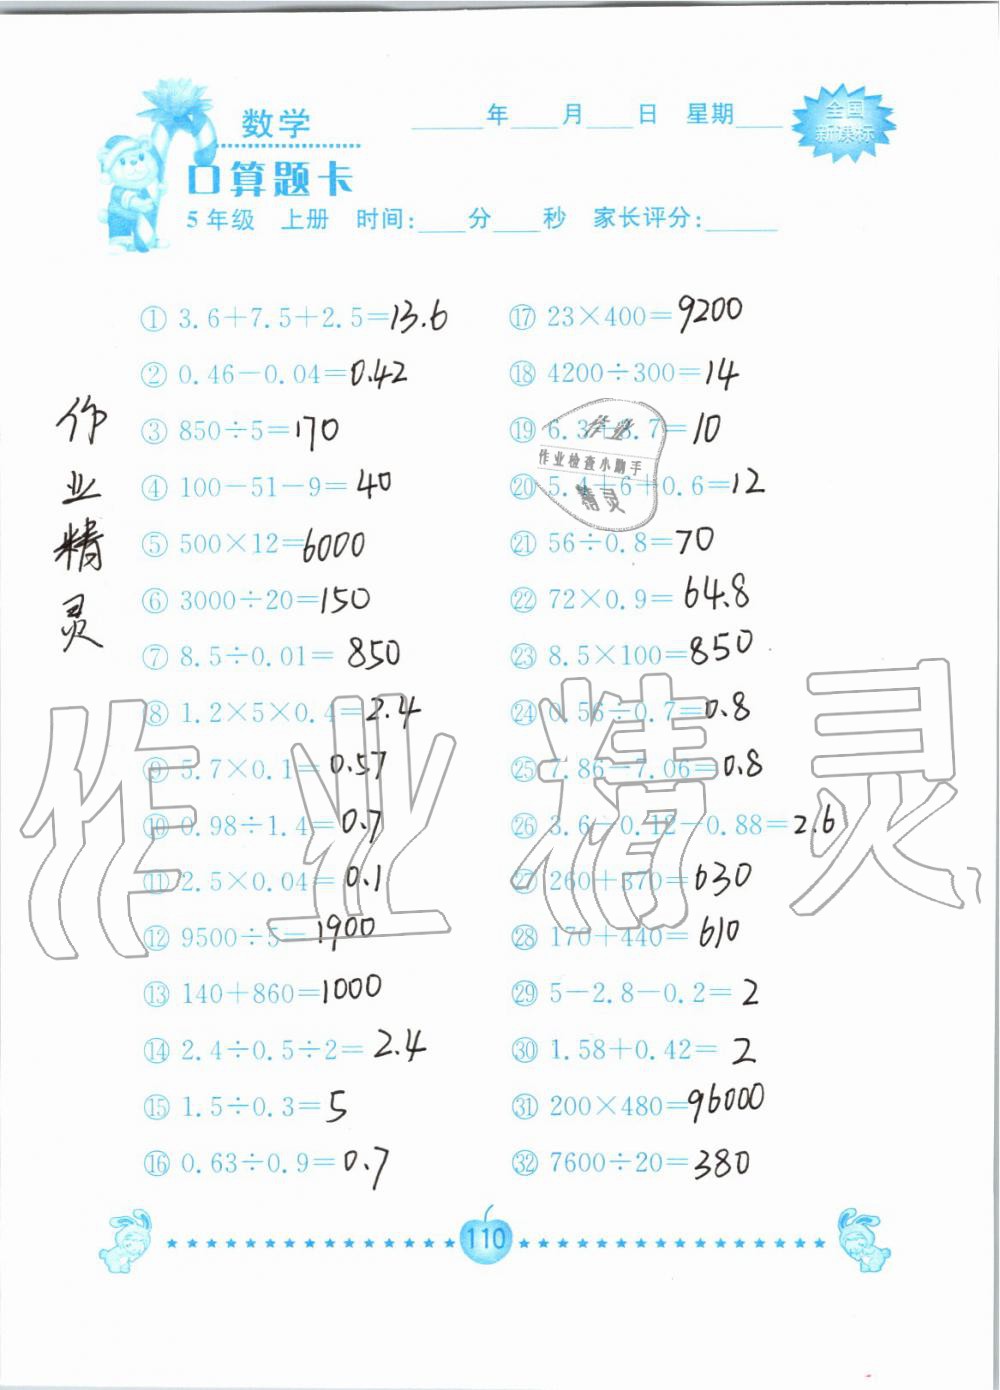 数学
____年____月____日 星期____
全国
新课标
口算题卡
5年级 上册 时间:____分____秒 家长评分:______
作业精灵
① 3.6+7.5+2.5=13.6
② 0.46-0.04=0.42
③ 850÷5=170
④ 100-51-9=40
⑤ 500×12=6000
⑥ 3000÷20=150
⑦ 8.5÷0.01=850
⑧ 1.2×5×0.4=2.4
⑨ 5.7×0.1=0.57
⑩ 0.98÷1.4=0.7
⑪ 2.5×0.04=0.1
⑫ 9500÷5=1900
⑬ 140+860=1000
⑭ 2.4÷0.5÷2=2.4
⑮ 1.5÷0.3=5
⑯ 0.63÷0.9=0.7
⑰ 23×400=9200
⑱ 4200÷300=14
⑲ 6.3+3.7=10
⑳ 5.4+6+0.6=12
㉑ 56÷0.8=70
㉒ 72×0.9=64.8
㉓ 8.5×100=850
㉔ 0.56÷0.7=0.8
㉕ 7.86-7.06=0.8
㉖ 3.6-0.12-0.88=2.6
㉗ 260+370=630
㉘ 170+440=610
㉙ 5-2.8-0.2=2
㉚ 1.58+0.42=2
㉛ 200×480=96000
㉜ 7600÷20=380
作业
作业检查小助手
精灵
作业精灵
110